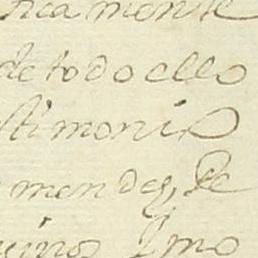 nca mente
de todo ello
stimonio
mendez, de
uinos